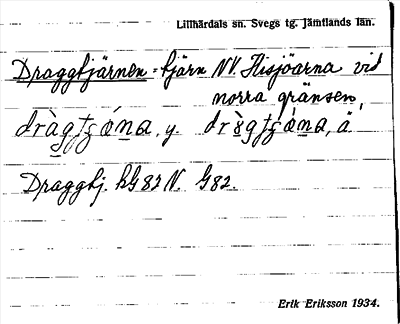 Lillhärdals sn. Svegs tg. Jämtlands län.
Draggtjärnen = tjärn NV. Hisjöarna vid
norra gränsen,
dràgtʃána, y. dràgtʃǻna, ä.
Draggtj. hG82 N. G82.
Erik Eriksson 1934.